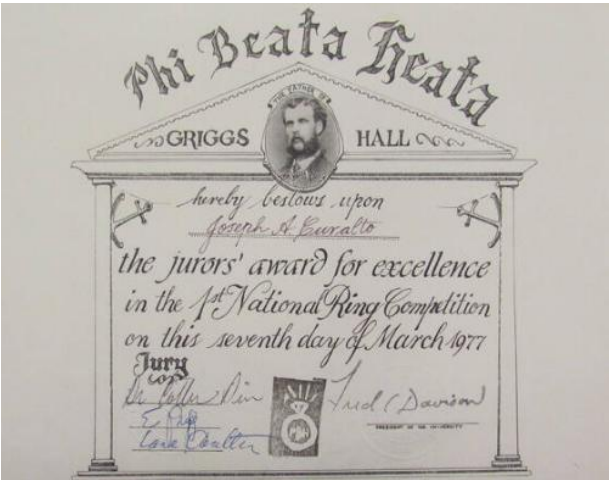 Phi Beata Heata
THE FATHER OF
GRIGGS HALL
hereby bestows upon
Joseph A. Curalto
the jurors' award for excellence
in the 1st National Ring Competition
on this seventh day of March 1977
Jury
Fred C Davison
PRESIDENT OF THE UNIVERSITY